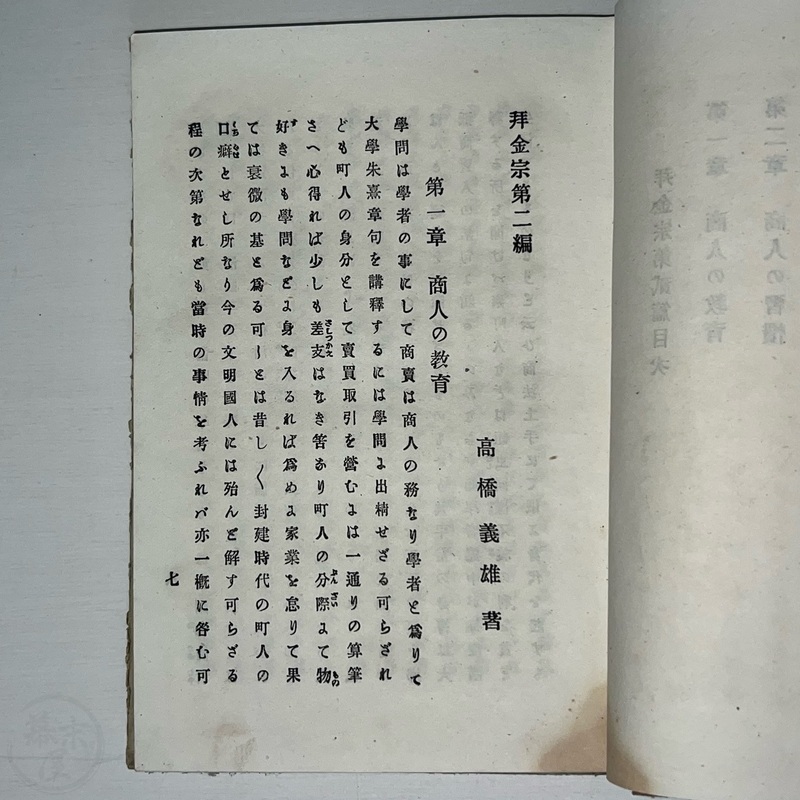 拜金宗第二編
高橋義雄著
第一章　商人の教育
學問は學者の事にして商賣は商人の務なり學者と爲りて
大學朱熹章句を講釋するには學問に出精せざる可らざれ
ども町人の身分として賣買取引を營むには一通りの算筆
さへ心得れば少しも差支はなき筈なり町人の分際にて物
好きにも學問などに身を入るれば爲めに家業を怠りて果
ては衰微の基と爲る可しとは昔し〱封建時代の町人の
口癖とせし所なり今の文明國人には殆んど解す可らざる
程の次第なれども當時の事情を考ふれバ亦一概に咎む可
七
第二章　商人の習慣
第一章　商人の教育
拜金宗第貳篇目次